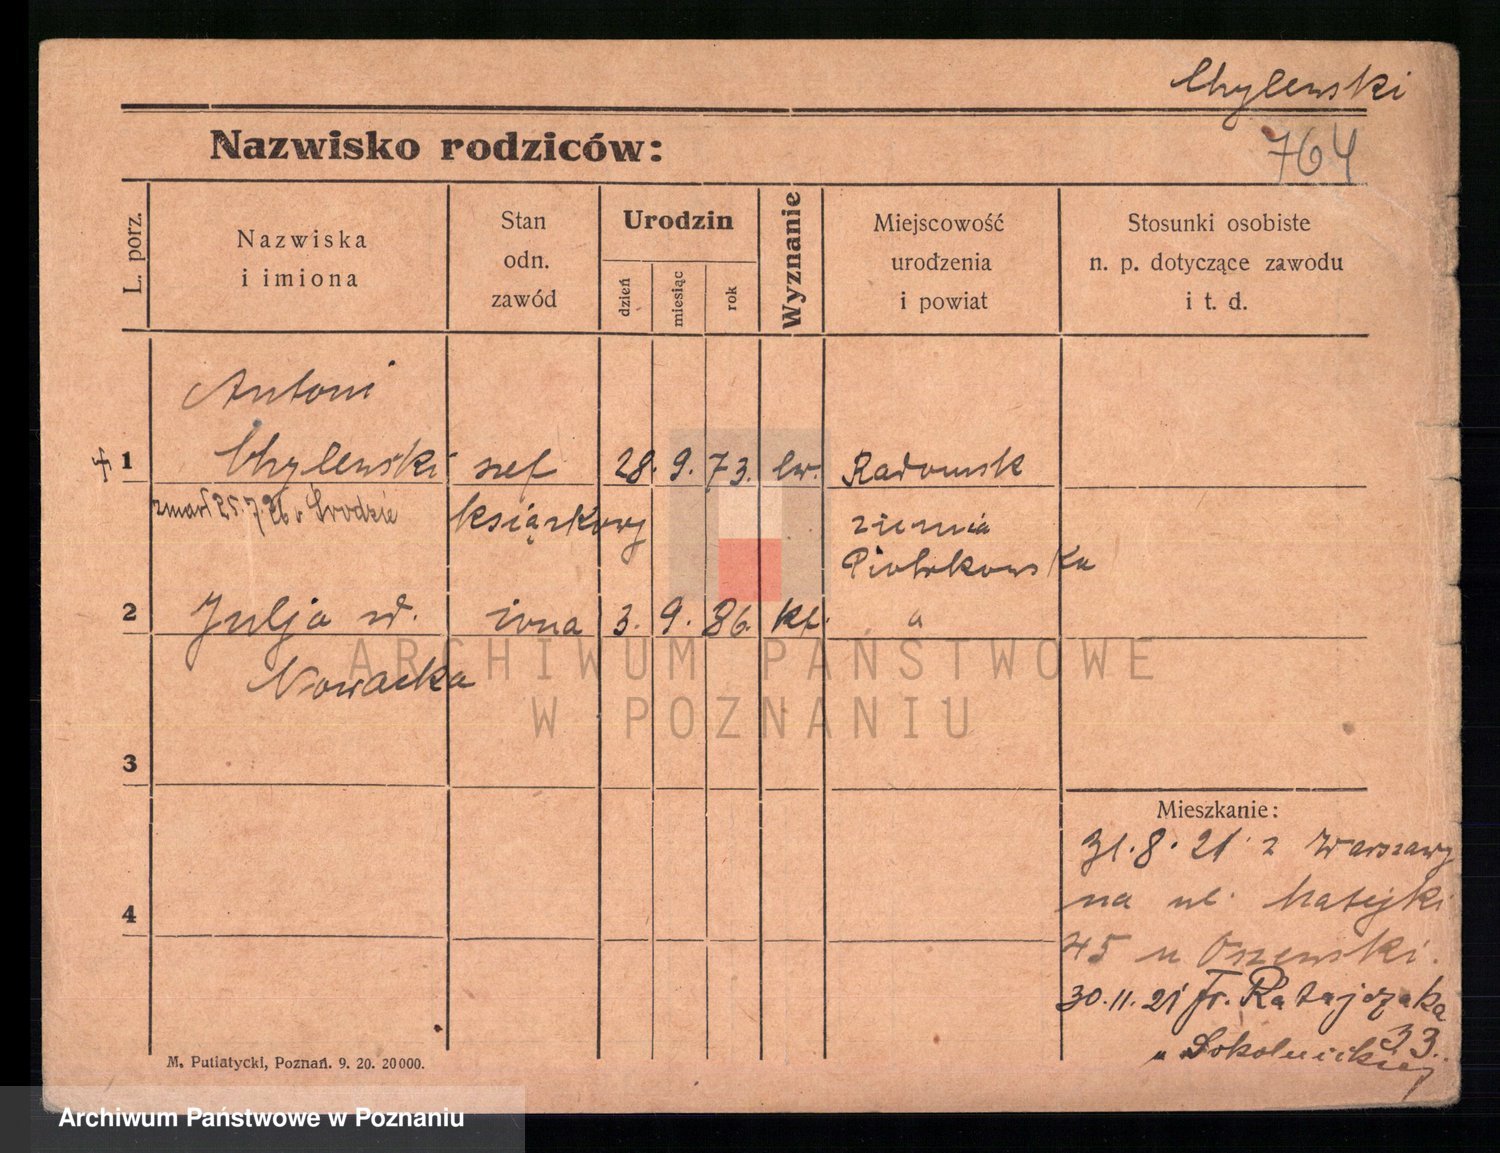 Chylewski
764
Nazwisko rodziców:
L. porz.
Nazwiska
i imiona
Stan
odn.
zawód
Urodzin
dzień
miesiąc
rok
Wyznanie
Miejscowość
urodzenia
i powiat
Stosunki osobiste
n. p. dotyczące zawodu
i t. d.
Antoni
1 Chylewski szef 28. 9. 73. Radomsk
zmarł 25.7.26 w Środzie książkowy ziemia
Piotrkowska
2 Julja żona 3. 9. 86. kt.
Nowacka
ARCHIWUM PAŃSTWOWE
W POZNANIU
3
Mieszkanie:
31.8.21 z Warszawy
na ul. Matejki
45 u Oszewski.
4
30.11.21 Fr. Ratajczaka
33.
u Sokolnickiej
M. Putiatycki, Poznań. 9. 20. 20000.
Archiwum Państwowe w Poznaniu